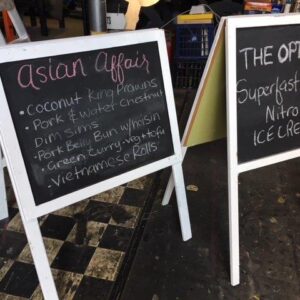 Asian Affair
• Coconut King Prawns
• Pork & Water Chestnut
Dim Sims
• Pork Belly Bun w/hoisin
• Green Curry Veg + Tofu
• Vietnamese Rolls
THE OPT
Superfast
Nitro
ICE CREA